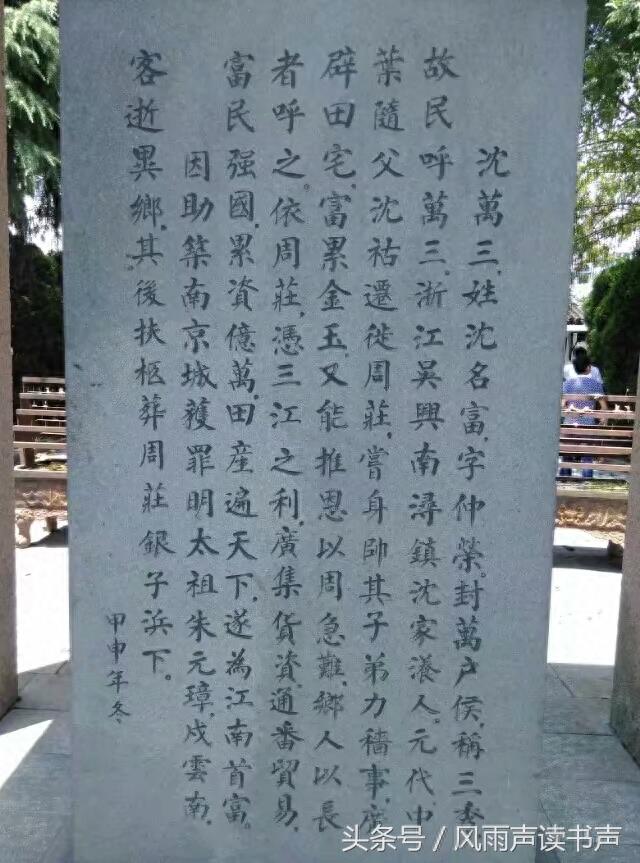 沈萬三，姓沈名富，字仲榮。封萬户侯，稱三秀，
故民呼萬三。浙江吴興南潯鎮沈家漾人。元代中
葉隨父沈祜遷徙周莊，嘗身帥其子弟力穡事，廣
辟田宅，富累金玉，又能推恩以周急難，鄉人以長
者呼之。依周莊，憑三江之利，廣集貨資，通番貿易，
富民强國，累資億萬，田産遍天下，遂為江南首富。
因助築南京城獲罪明太祖朱元璋，戍雲南，
客逝異鄉，其後扶柩葬周莊銀子浜下。
甲申年冬
头条号 / 风雨声读书声